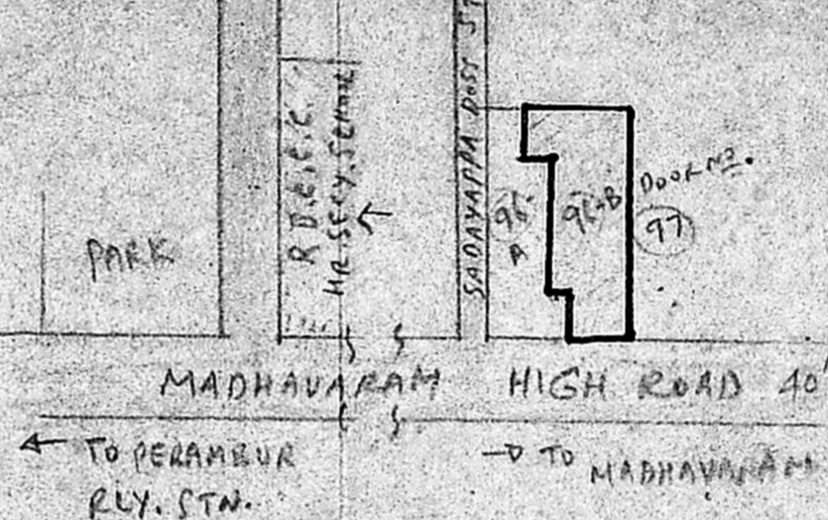 PARK
R.B.C.C.C.
HR. SECY. SCHOOL
SADAYAPPA DOSS ST
96-
A
96-B
DOOR NO.
97
MADHAVARAM HIGH ROAD 40'
← TO PERAMBUR
RLY. STN.
→ TO MADHAVARAM